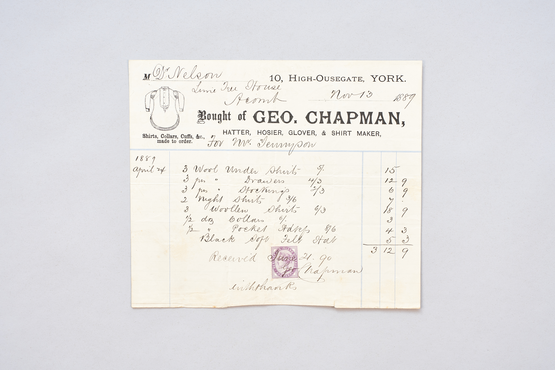 M Dr Nelson
10, HIGH-OUSEGATE, YORK.
Lime Tree House
Acomb Nov 13 1889
Bought of GEO. CHAPMAN,
HATTER, HOSIER, GLOVER, & SHIRT MAKER,
Shirts, Collars, Cuffs, &c., made to order.
For Mr Tennyson
1889
April 4 3 Wool Under Shirts 5/ 15
3 prs " Drawers 4/3 12 9
3 prs " Stockings 2/3 6 9
2 Night Shirts 3/6 7
3 Woollen Shirts 6/3 18 9
1/2 doz Collars 6/ 3
1/2 " Pocket Hdkfs 8/6 4 3
Black Soft Felt Hat 5 3
3 12 9
Received June 21 90
Chapman
with thanks